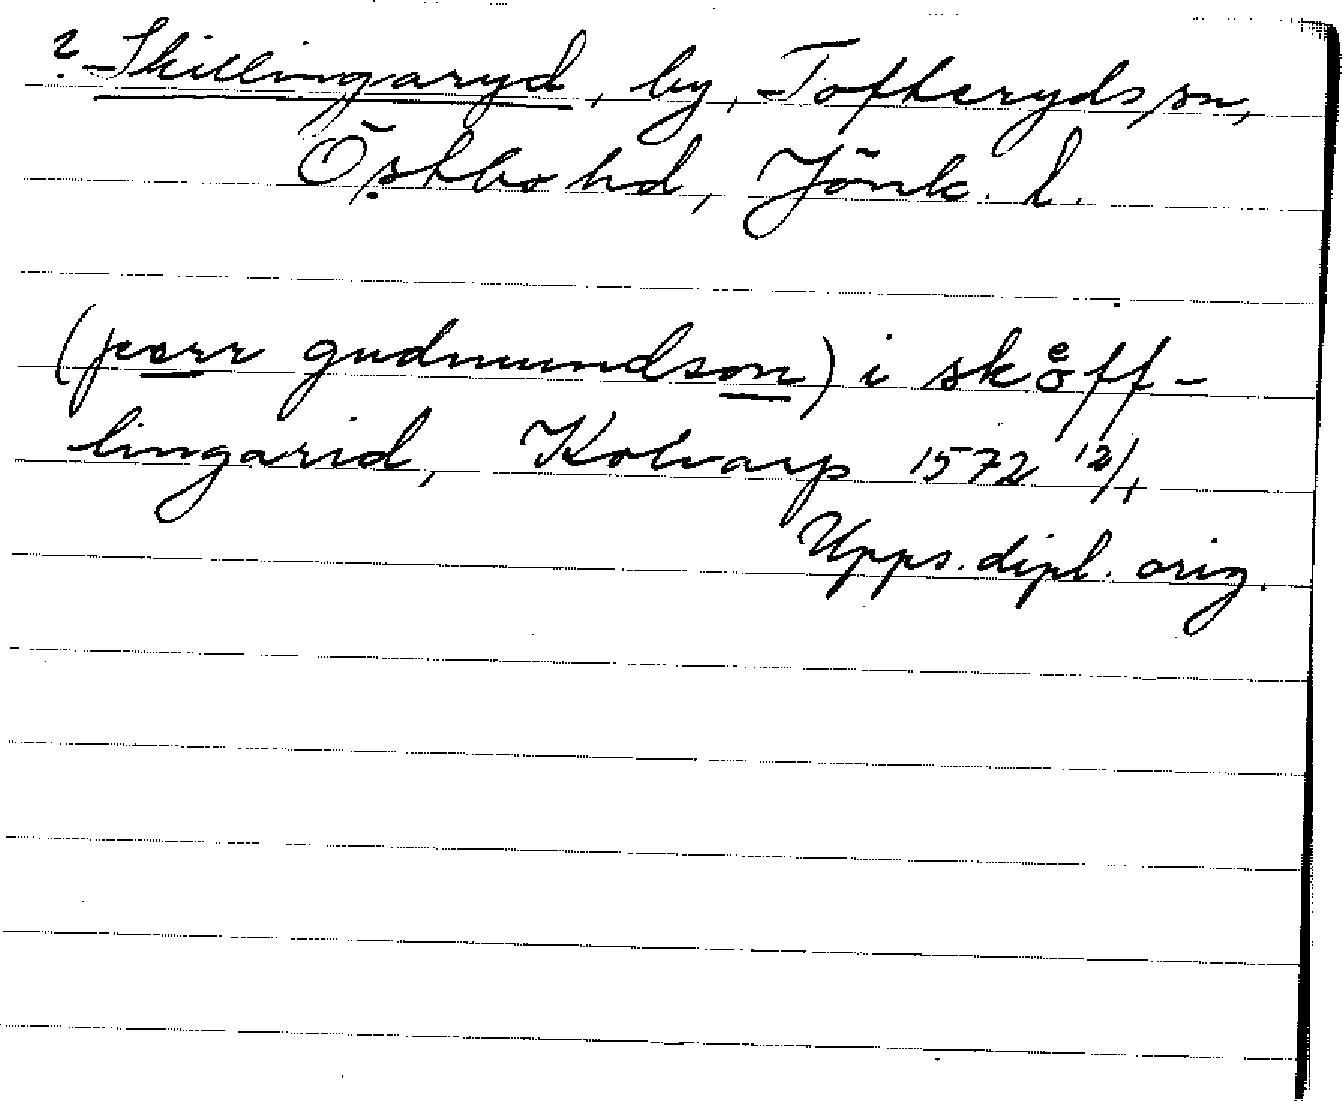 ? Skillingaryd, by, Tofteryds sn,
Östbo hd, Jönk. l.
(perr gudmundson) i skoͤff-
lingarid, Kolvarp 1572 12/1
Upps. dipl. orig.